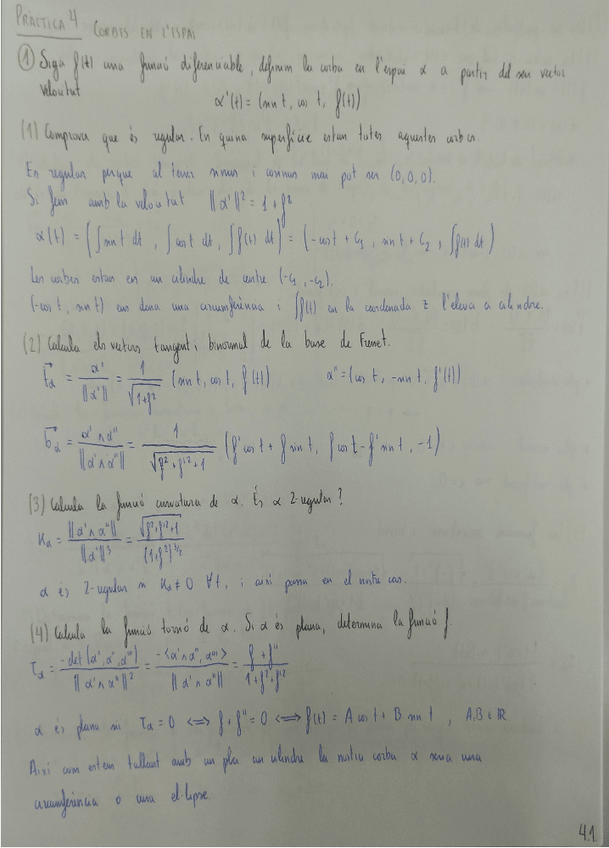 PRÀCTICA 4 CORBES EN L'ESPAI
① Siga f(t) una funció diferenciable, definim la corba en l'espai α a partir del seu vector
velocitat α'(t) = (sin t, cos t, f(t))
(1) Comprova que és regular. En quina superfície estan totes aquestes corbes.
És regular perque al tenir sinus i cosinus mai pot ser (0,0,0).
Si fem amb la velocitat ||α'||² = 1 + f²
α(t) = (∫sin t dt, ∫cos t dt, ∫f(t) dt) = (-cos t + C₁, sin t + C₂, ∫f(t) dt)
Les corbes estan en un cilindre de centre (-C₁, -C₂).
(-cos t, sin t) ens dona una circumferència i ∫f(t) en la coordenada z l'eleva a cilindre.
(2) Calcula els vectors tangent i binormal de la base de Frenet.
t⃗α = α' / ||α'|| = 1 / √(1+f²) (sin t, cos t, f(t)) α'' = (cos t, -sin t, f'(t))
b⃗α = α' ∧ α'' / ||α' ∧ α''|| = 1 / √(f²+f'²+1) (f' cos t + f sin t, f cos t - f' sin t, -1)
(3) Calcula la funció curvatura de α. És α 2-regular?
κα = ||α' ∧ α''|| / ||α'||³ = √(f²+f'²+1) / (1+f²)^(3/2)
α és 2-regular si κα ≠ 0 ∀t, i així passa en el nostre cas.
(4) Calcula la funció torsió de α. Si α és plana, determina la funció f.
τα = -det(α', α'', α''') / ||α' ∧ α''||² = -<α' ∧ α'', α'''> / ||α' ∧ α''|| = f + f'' / 1+f²+f'²
α és plana si τα = 0 ⟺ f + f'' = 0 ⟺ f(t) = A cos t + B sin t, A,B ∈ ℝ
Així com estem tallant amb un pla un cilindre la nostra corba α seria una
circumferència o una el·lipse.
4.1